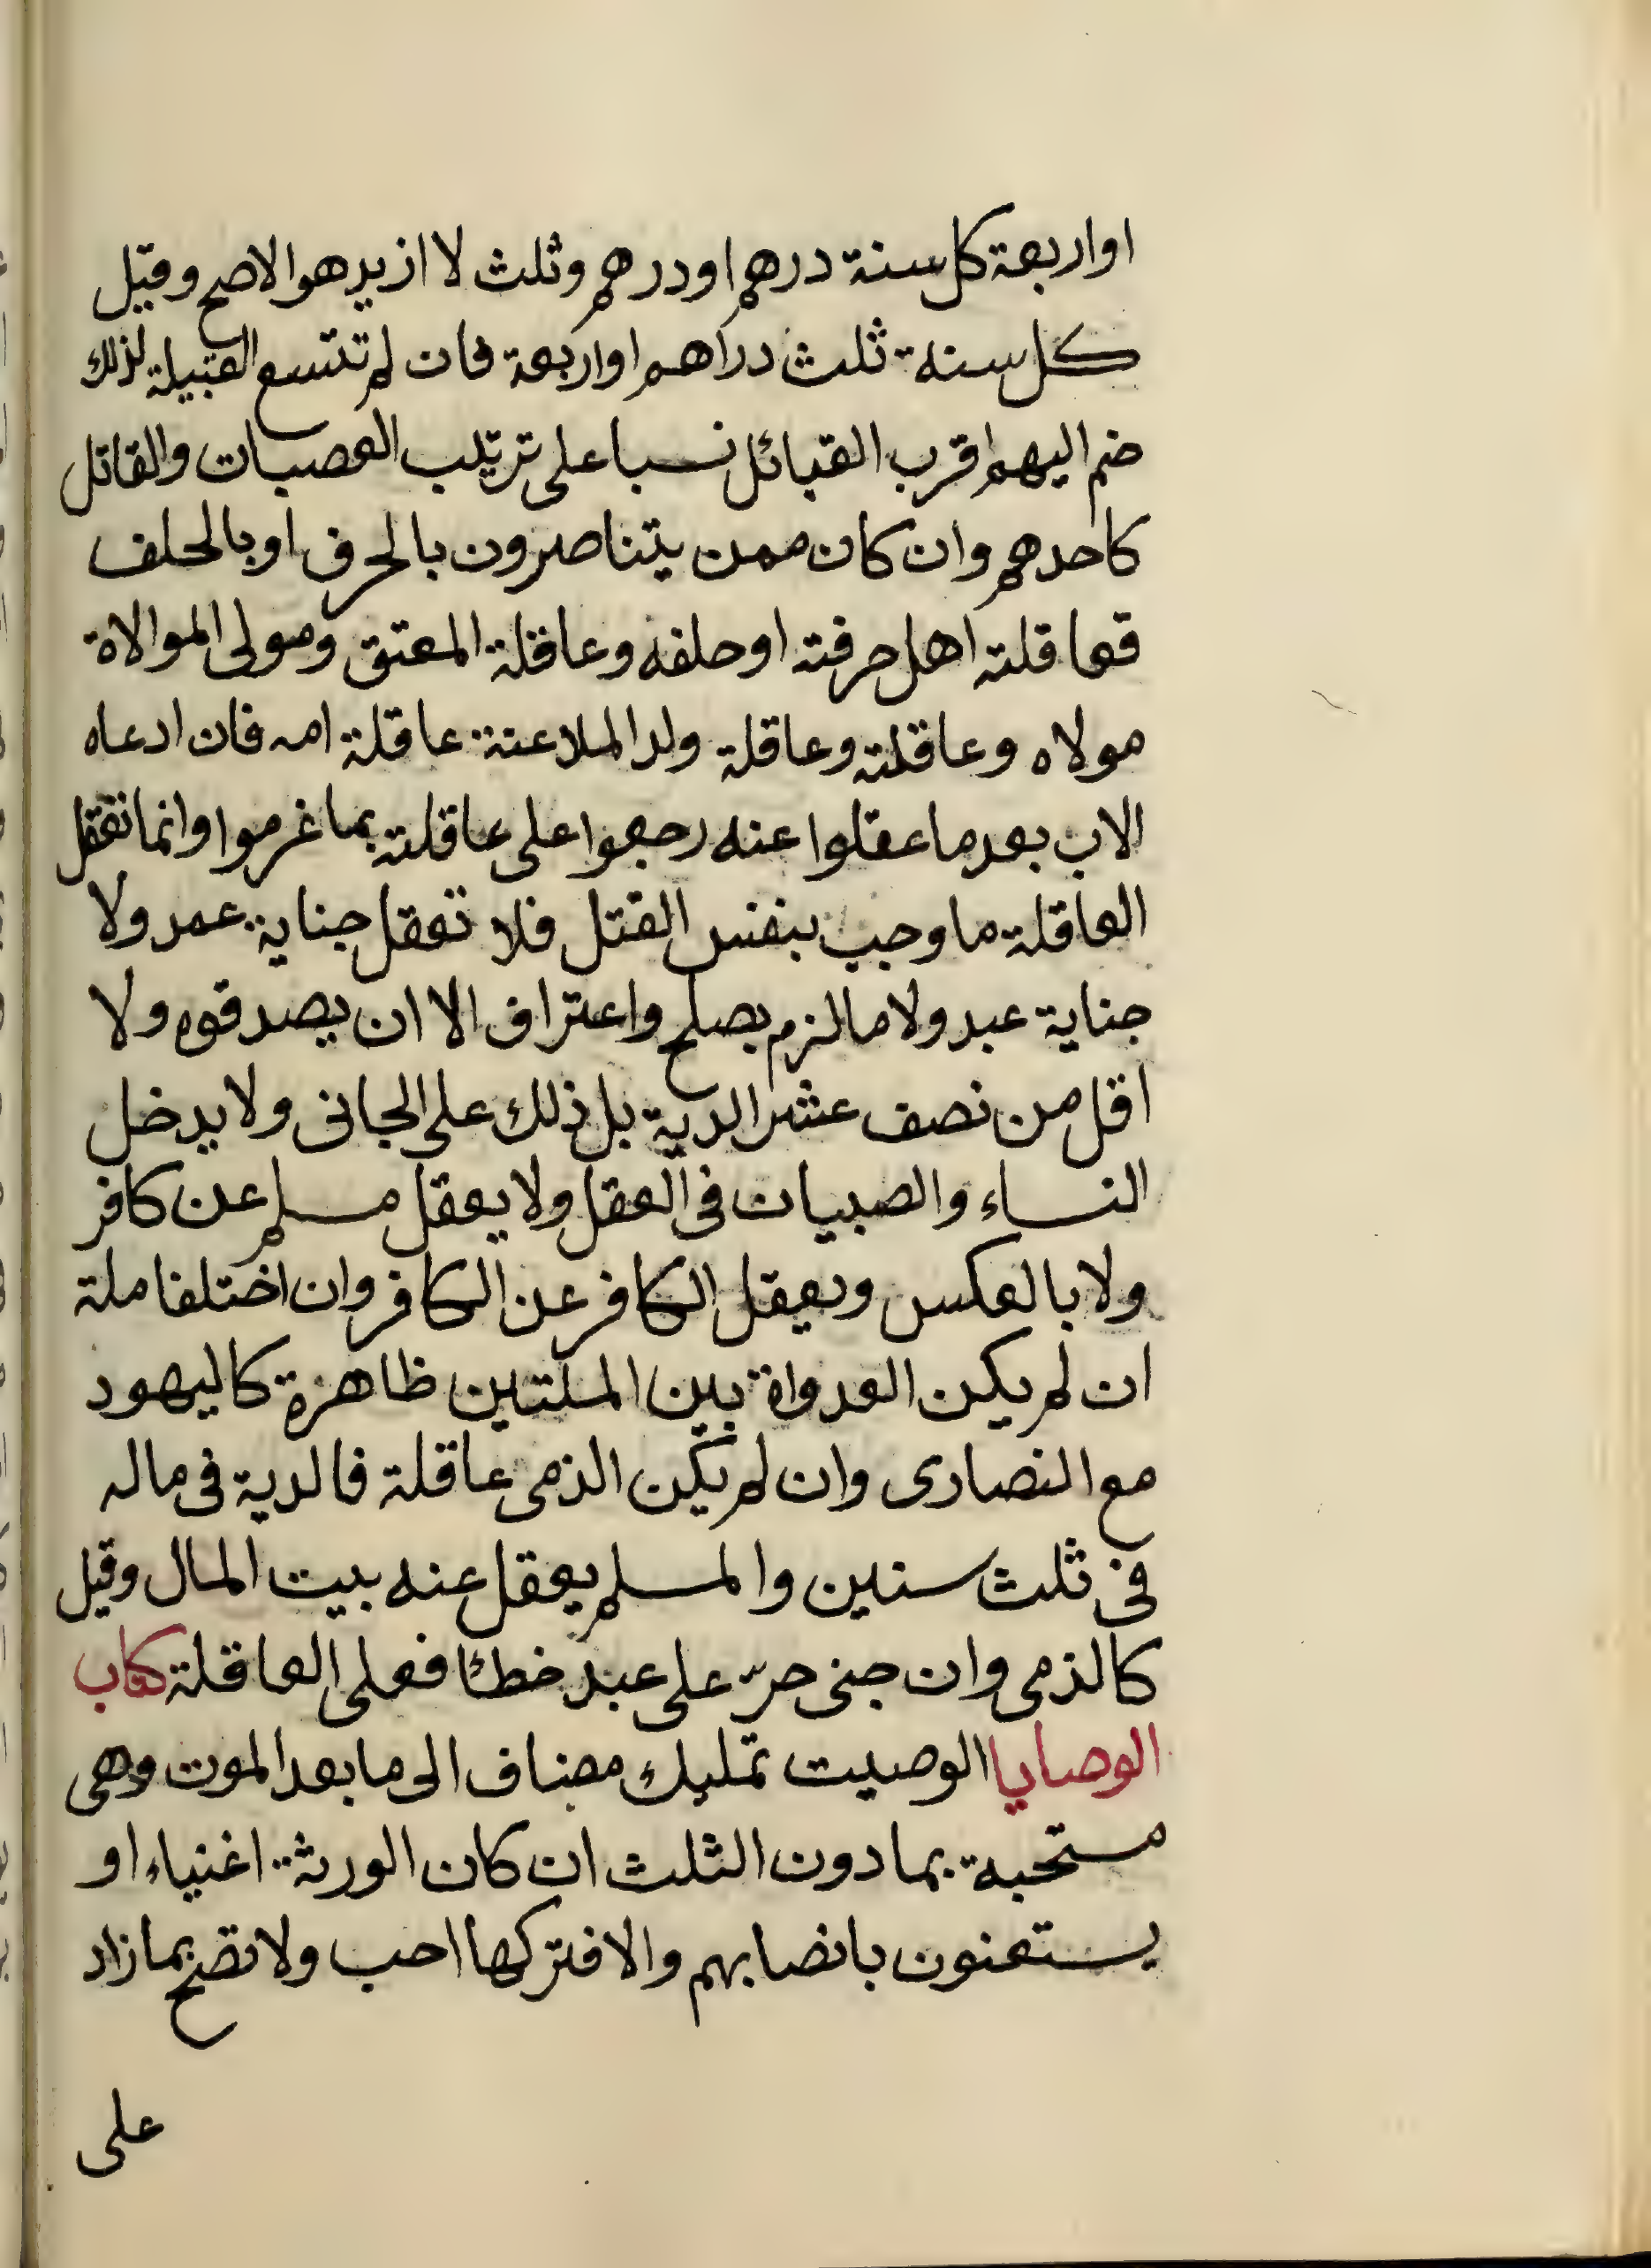 او اربعة كل سنة درهم او درهم وثلث لا ازيد هو الاصح وقيل
كل سنة ثلث دراهم او اربعة فان لم تتسع القبيلة لذلك
ضم اليهم اقرب القبائل نسبا على ترتيب العصبات والقاتل
كاحدهم وان كان ممن يتناصرون بالحرف او بالحلف
فعاقلته اهل حرفته او حلفه وعاقلة المعتق ومولى الموالاة
مولاه وعاقلته وعاقلة ولد الملاعنة عاقلة امه فان ادعاه
الاب بعد ما عقلوا عنه رجعوا على عاقلته بما غرموا وانما تعقل
العاقلة ما وجب بنفس القتل فلا تعقل جناية عمد ولا
جناية عبد ولا ما لزم بصلح واعتراف الا ان يصدقوه ولا
اقل من نصف عشر الدية بل ذلك على الجانى ولا يدخل
النساء والصبيان فى العقل ولا يعقل مسلم عن كافر
ولا بالعكس ويعقل الكافر عن الكافر وان اختلفا ملة
ان لم يكن العدواة بين الملتين ظاهرة كاليهود
مع النصارى وان لم يكن الذمى عاقلة فالدية فى ماله
فى ثلث سنين والمسلم يعقل عنه بيت المال وقيل
كالذمى وان جنى حر على عبد خطئا فعلى العاقلة كتاب
الوصايا الوصيت تمليك مضاف الى ما بعد الموت وهى
مستحبة بما دون الثلث ان كان الورثة اغنياء او
يستغنون بانصابهم والا فتركها احب ولا تصح بما زاد
على